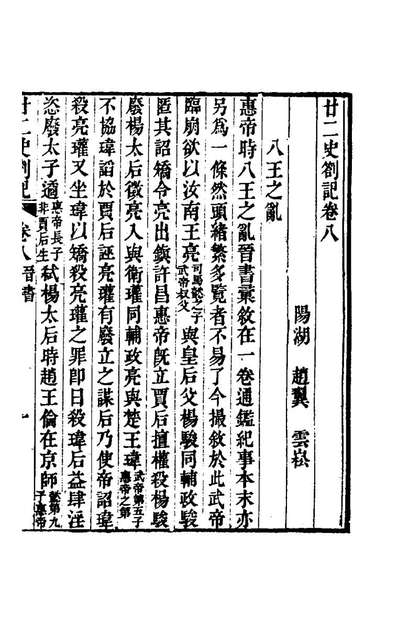 廿二史劄記卷八
陽湖 趙翼 雲崧
八王之亂
惠帝時八王之亂晉書彙敘在一卷通鑑紀事本末亦
另為一條然頭緒繁多覽者不易了今撮敘於此武帝
臨崩欲以汝南王亮司馬懿之子武帝叔父與皇后父楊駿同輔政駿
匿其詔矯令亮出鎮許昌惠帝既立賈后擅權殺楊駿
廢楊太后徵亮入與衛瓘同輔政亮與楚王瑋武帝第五子惠帝之弟
不協瑋譖於賈后誣亮瓘有廢立之謀后乃使帝詔瑋
殺亮瓘又坐瑋以矯殺亮瓘之罪即日殺瑋后益肆淫
恣廢太子遹惠帝長子非賈后生弒楊太后時趙王倫在京師懿第九子惠帝
廿二史劄記 卷八 晉書 一